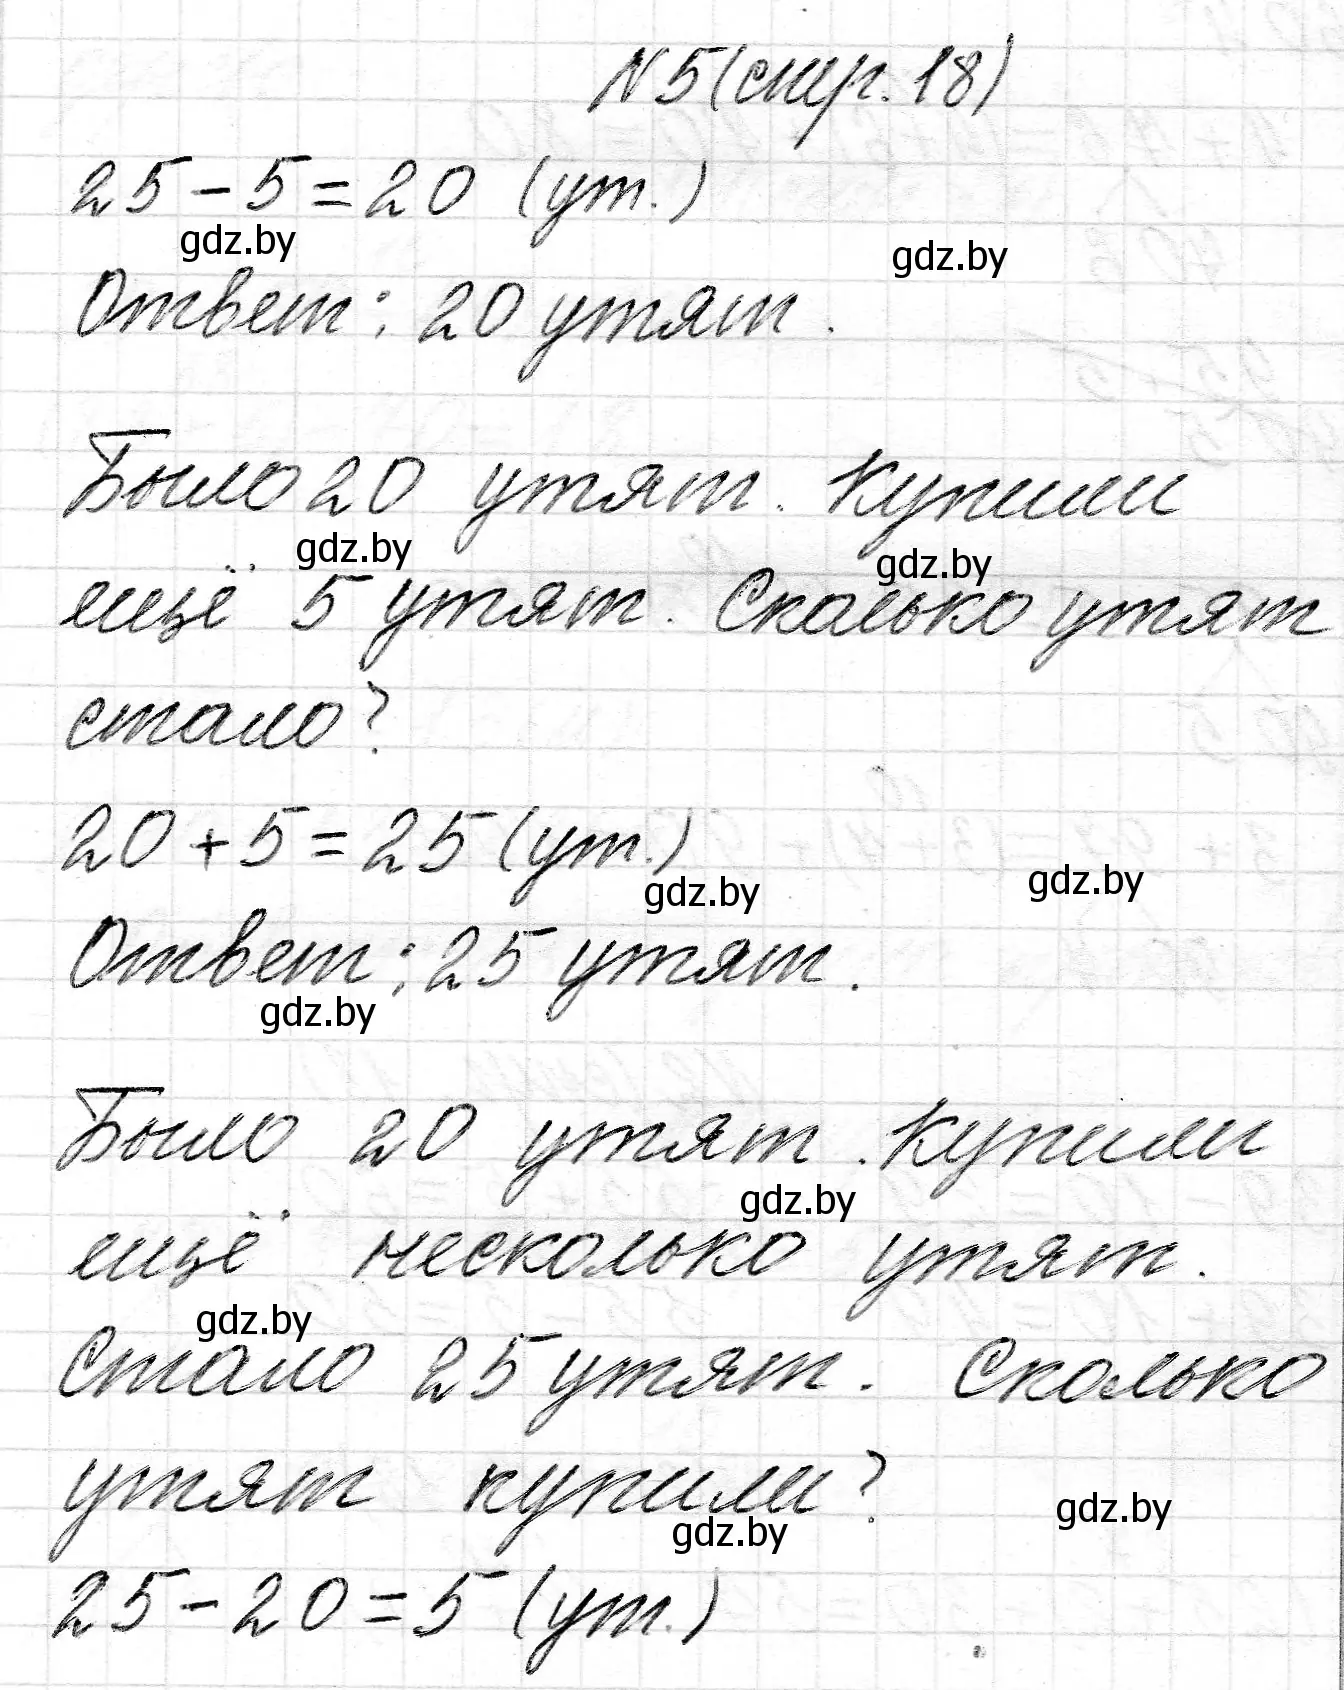 №5 (стр. 18)
25 - 5 = 20 (ут.)
gdz.by
gdz.by
Ответ: 20 утят.
Было 20 утят. Купили
gdz.by
gdz.by
ещё 5 утят. Сколько утят
стало?
20 + 5 = 25 (ут.)
gdz.by
gdz.by
Ответ: 25 утят.
gdz.by
Было 20 утят. Купили
gdz.by
ещё несколько утят.
gdz.by
Стало 25 утят. Сколько
утят купили?
gdz.by
gdz.by
25 - 20 = 5 (ут.)